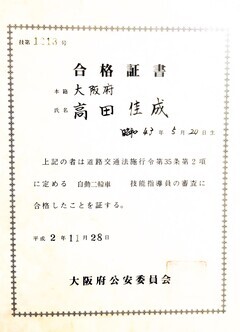 技第1218号
合格証書
本籍 大阪府
氏名 高田佳成
昭和43年5月20日生
上記の者は道路交通法施行令第35条第2項
に定める 自動二輪車 技能指導員の審査に
合格したことを証する。
平成2年11月28日
大阪府公安委員会